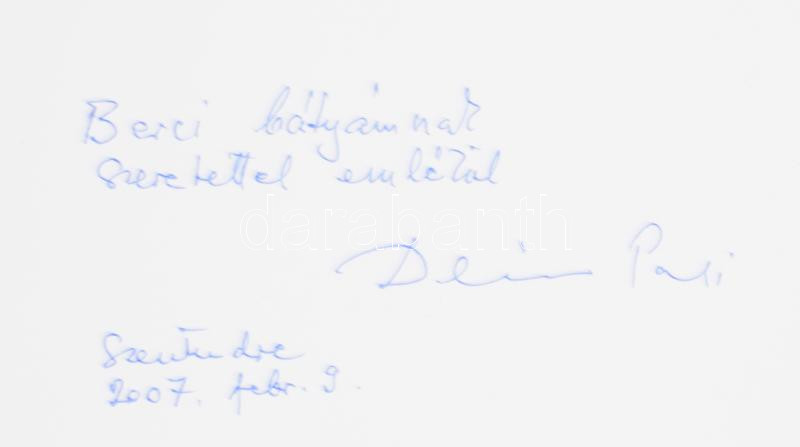 Berci bátyámnak
szeretettel emlékül
darabanth
Pali
Szentendre
2007. febr. 9.